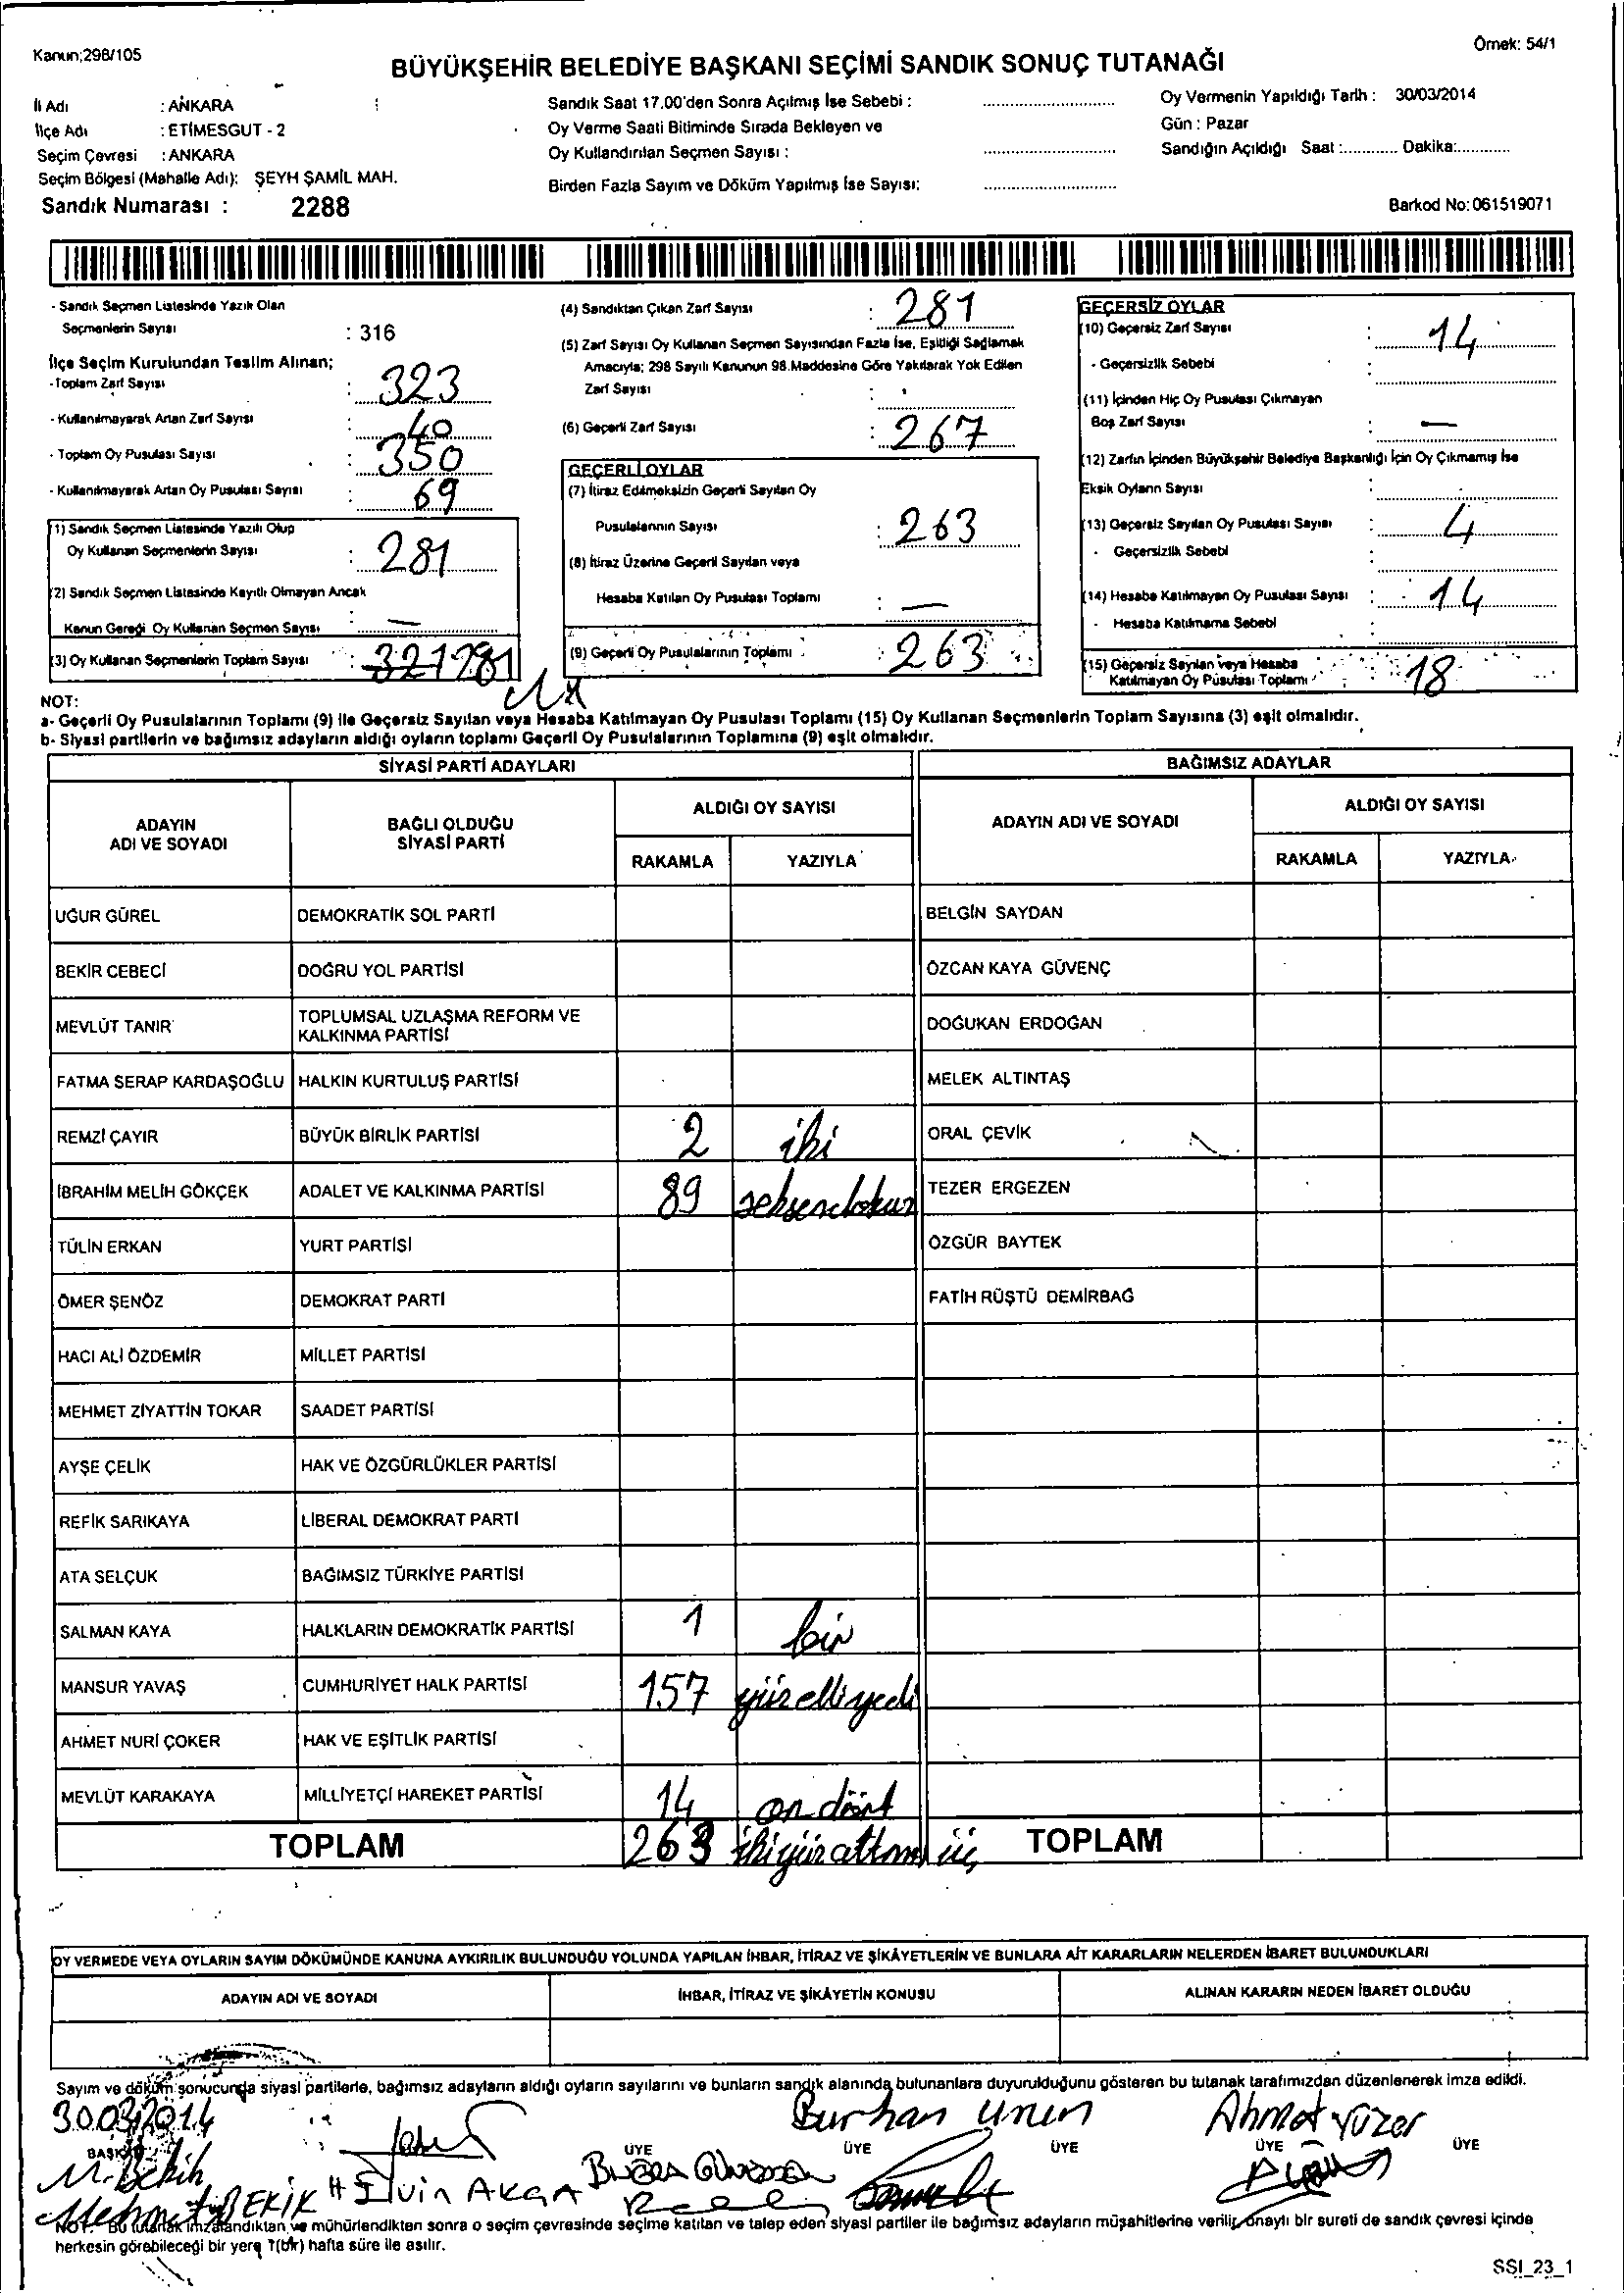 Kanun;298/105
Örnek: 54/1
BÜYÜKŞEHİR BELEDİYE BAŞKANI SEÇİMİ SANDIK SONUÇ TUTANAĞI
İl Adı : ANKARA
İlçe Adı : ETİMESGUT - 2
Seçim Çevresi : ANKARA
Seçim Bölgesi (Mahalle Adı): ŞEYH ŞAMİL MAH.
Sandık Numarası : 2288
Sandık Saat 17.00'den Sonra Açılmış İse Sebebi :
Oy Verme Saati Bitiminde Sırada Bekleyen ve
Oy Kullandırılan Seçmen Sayısı :
Birden Fazla Sayım ve Döküm Yapılmış İse Sayısı:
Oy Vermenin Yapıldığı Tarih : 30/03/2014
Gün : Pazar
Sandığın Açıldığı Saat :............ Dakika:............
Barkod No: 061519071
- Sandık Seçmen Listesinde Yazılı Olan
Seçmenlerin Sayısı : 316
İlçe Seçim Kurulundan Teslim Alınan;
- Toplam Zarf Sayısı : 323
- Kullanılmayarak Artan Zarf Sayısı : 40
- Toplam Oy Pusulası Sayısı : 350
- Kullanılmayarak Artan Oy Pusulası Sayısı : 69
(1) Sandık Seçmen Listesinde Yazılı Olup
Oy Kullanan Seçmenlerin Sayısı : 281
(2) Sandık Seçmen Listesinde Kayıtlı Olmayan Ancak
Kanun Gereği Oy Kullanan Seçmen Sayısı : —
(3) Oy Kullanan Seçmenlerin Toplam Sayısı : 321 281
(4) Sandıktan Çıkan Zarf Sayısı : 281
(5) Zarf Sayısı Oy Kullanan Seçmen Sayısından Fazla İse, Eşitliği Sağlamak
Amacıyla; 298 Sayılı Kanunun 98.Maddesine Göre Yakılarak Yok Edilen
Zarf Sayısı :
(6) Geçerli Zarf Sayısı : 267
GEÇERLİ OYLAR
(7) İtiraz Edilmeksizin Geçerli Sayılan Oy
Pusulalarının Sayısı : 263
(8) İtiraz Üzerine Geçerli Sayılan veya
Hesaba Katılan Oy Pusulası Toplamı : —
(9) Geçerli Oy Pusulalarının Toplamı : 263
GEÇERSİZ OYLAR
(10) Geçersiz Zarf Sayısı : 14
- Geçersizlik Sebebi :
(11) İçinden Hiç Oy Pusulası Çıkmayan
Boş Zarf Sayısı : —
(12) Zarfın İçinden Büyükşehir Belediye Başkanlığı İçin Oy Çıkmamış İse
Eksik Oyların Sayısı :
(13) Geçersiz Sayılan Oy Pusulası Sayısı : 4
- Geçersizlik Sebebi :
(14) Hesaba Katılmayan Oy Pusulası Sayısı : 14
- Hesaba Katılmama Sebebi :
(15) Geçersiz Sayılan veya Hesaba
Katılmayan Oy Pusulası Toplamı : 18
NOT:
a- Geçerli Oy Pusulalarının Toplamı (9) ile Geçersiz Sayılan veya Hesaba Katılmayan Oy Pusulası Toplamı (15) Oy Kullanan Seçmenlerin Toplam Sayısına (3) eşit olmalıdır.
b- Siyasi partilerin ve bağımsız adayların aldığı oyların toplamı Geçerli Oy Pusulalarının Toplamına (9) eşit olmalıdır.
SİYASİ PARTİ ADAYLARI
BAĞIMSIZ ADAYLAR
ADAYIN ADI VE SOYADI
BAĞLI OLDUĞU SİYASİ PARTİ
ALDIĞI OY SAYISI
RAKAMLA YAZIYLA
ADAYIN ADI VE SOYADI
ALDIĞI OY SAYISI
RAKAMLA YAZIYLA
UĞUR GÜREL DEMOKRATİK SOL PARTİ BELGİN SAYDAN
BEKİR CEBECİ DOĞRU YOL PARTİSİ ÖZCAN KAYA GÜVENÇ
MEVLÜT TANIR TOPLUMSAL UZLAŞMA REFORM VE KALKINMA PARTİSİ DOĞUKAN ERDOĞAN
FATMA SERAP KARDAŞOĞLU HALKIN KURTULUŞ PARTİSİ MELEK ALTINTAŞ
REMZİ ÇAYIR BÜYÜK BİRLİK PARTİSİ 2 iki ORAL ÇEVİK
İBRAHİM MELİH GÖKÇEK ADALET VE KALKINMA PARTİSİ 89 seksendokuz TEZER ERGEZEN
TÜLİN ERKAN YURT PARTİSİ ÖZGÜR BAYTEK
ÖMER ŞENÖZ DEMOKRAT PARTİ FATİH RÜŞTÜ DEMİRBAĞ
HACI ALİ ÖZDEMİR MİLLET PARTİSİ
MEHMET ZİYATTİN TOKAR SAADET PARTİSİ
AYŞE ÇELİK HAK VE ÖZGÜRLÜKLER PARTİSİ
REFİK SARIKAYA LİBERAL DEMOKRAT PARTİ
ATA SELÇUK BAĞIMSIZ TÜRKİYE PARTİSİ
SALMAN KAYA HALKLARIN DEMOKRATİK PARTİSİ 1 bir
MANSUR YAVAŞ CUMHURİYET HALK PARTİSİ 157 yüzelliyedi
AHMET NURİ ÇOKER HAK VE EŞİTLİK PARTİSİ
MEVLÜT KARAKAYA MİLLİYETÇİ HAREKET PARTİSİ 14 on dört
TOPLAM 263 ikiyüzaltmış üç TOPLAM
OY VERMEDE VEYA OYLARIN SAYIM DÖKÜMÜNDE KANUNA AYKIRILIK BULUNDUĞU YOLUNDA YAPILAN İHBAR, İTİRAZ VE ŞİKÂYETLERİN VE BUNLARA AİT KARARLARIN NELERDEN İBARET BULUNDUKLARI
ADAYIN ADI VE SOYADI İHBAR, İTİRAZ VE ŞİKÂYETİN KONUSU ALINAN KARARIN NEDEN İBARET OLDUĞU
Sayım ve döküm sonucunda siyasi partilerle, bağımsız adayların aldığı oyların sayılarını ve bunların sandık alanında bulunanlara duyurulduğunu gösteren bu tutanak tarafımızdan düzenlenerek imza edildi.
30.03.2014 Burhan Ahmet yüzer
BAŞKAN ÜYE ÜYE ÜYE ÜYE ÜYE
M. Bekik
Mehmet BEKİK Elvin AKÇA
NOT: Bu tutanak imzalandıktan ve mühürlendikten sonra o seçim çevresinde seçime katılan ve talep eden siyasi partiler ile bağımsız adayların müşahitlerine verilir, onaylı bir sureti de sandık çevresi içinde
herkesin görebileceği bir yere 1(bir) hafta süre ile asılır.
SSI_23_1